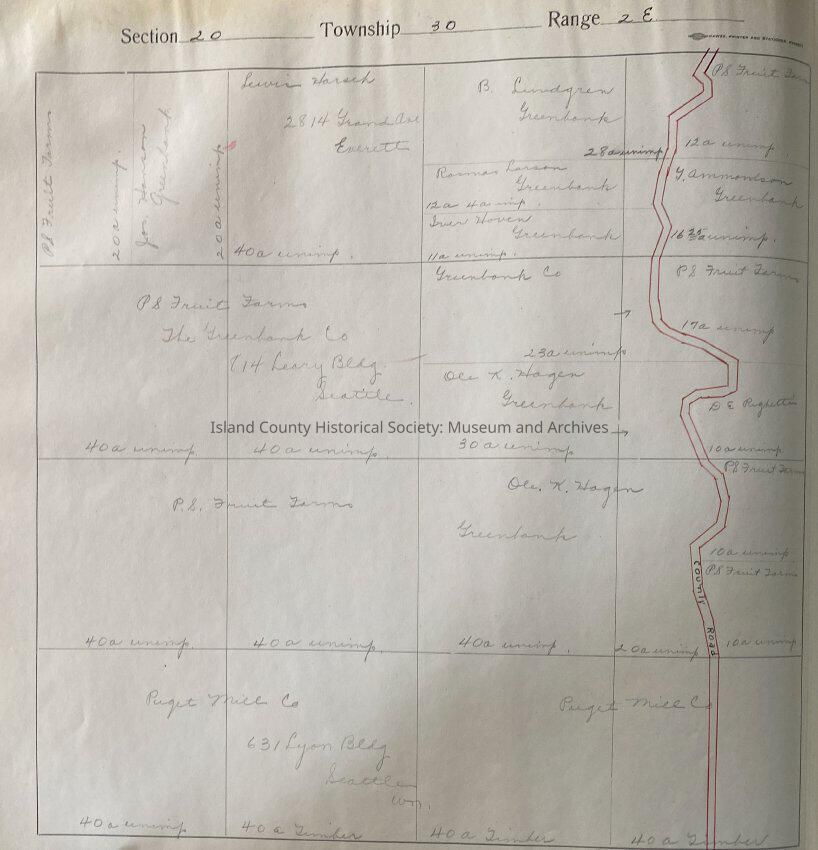 Section 20 Township 30 Range 2 E
PS Fruit Farms
20a unimp.
Jon. Hanson
Greenbank
20a unimp
Lewis Harsch
2814 Grand Ave
Everett
40a unimp.
B. Lundgren
Greenbank
28a unimp
Rasmus Larson
Greenbank
12a 4a imp.
Iver Hoven
Greenbank
11a unimp.
PS Fruit Farm
12a unimp.
Y. Ammondson
Greenbank
unimp.
PS Fruit Farms
The Greenbank Co
714 Leary Bldg.
Seattle.
40a unimp.
40a unimp.
Greenbank Co
23a unimp
Ole K. Hagen
Greenbank
30a unimp
PS Fruit Farms
17a unimp
D E
10a unimp
Island County Historical Society: Museum and Archives
P.S. Fruit Farms
40a unimp.
40a unimp.
Ole. K. Hagen
Greenbank
40a unimp.
20a unimp
PS Fruit Farms
10a unimp
PS Fruit Farms
10a unimp
COUNTY ROAD
Puget Mill Co
631 Lyon Bldg
Seattle
Wn.
40a unimp
40a Timber
Puget Mill Co
40a Timber
40a Timber